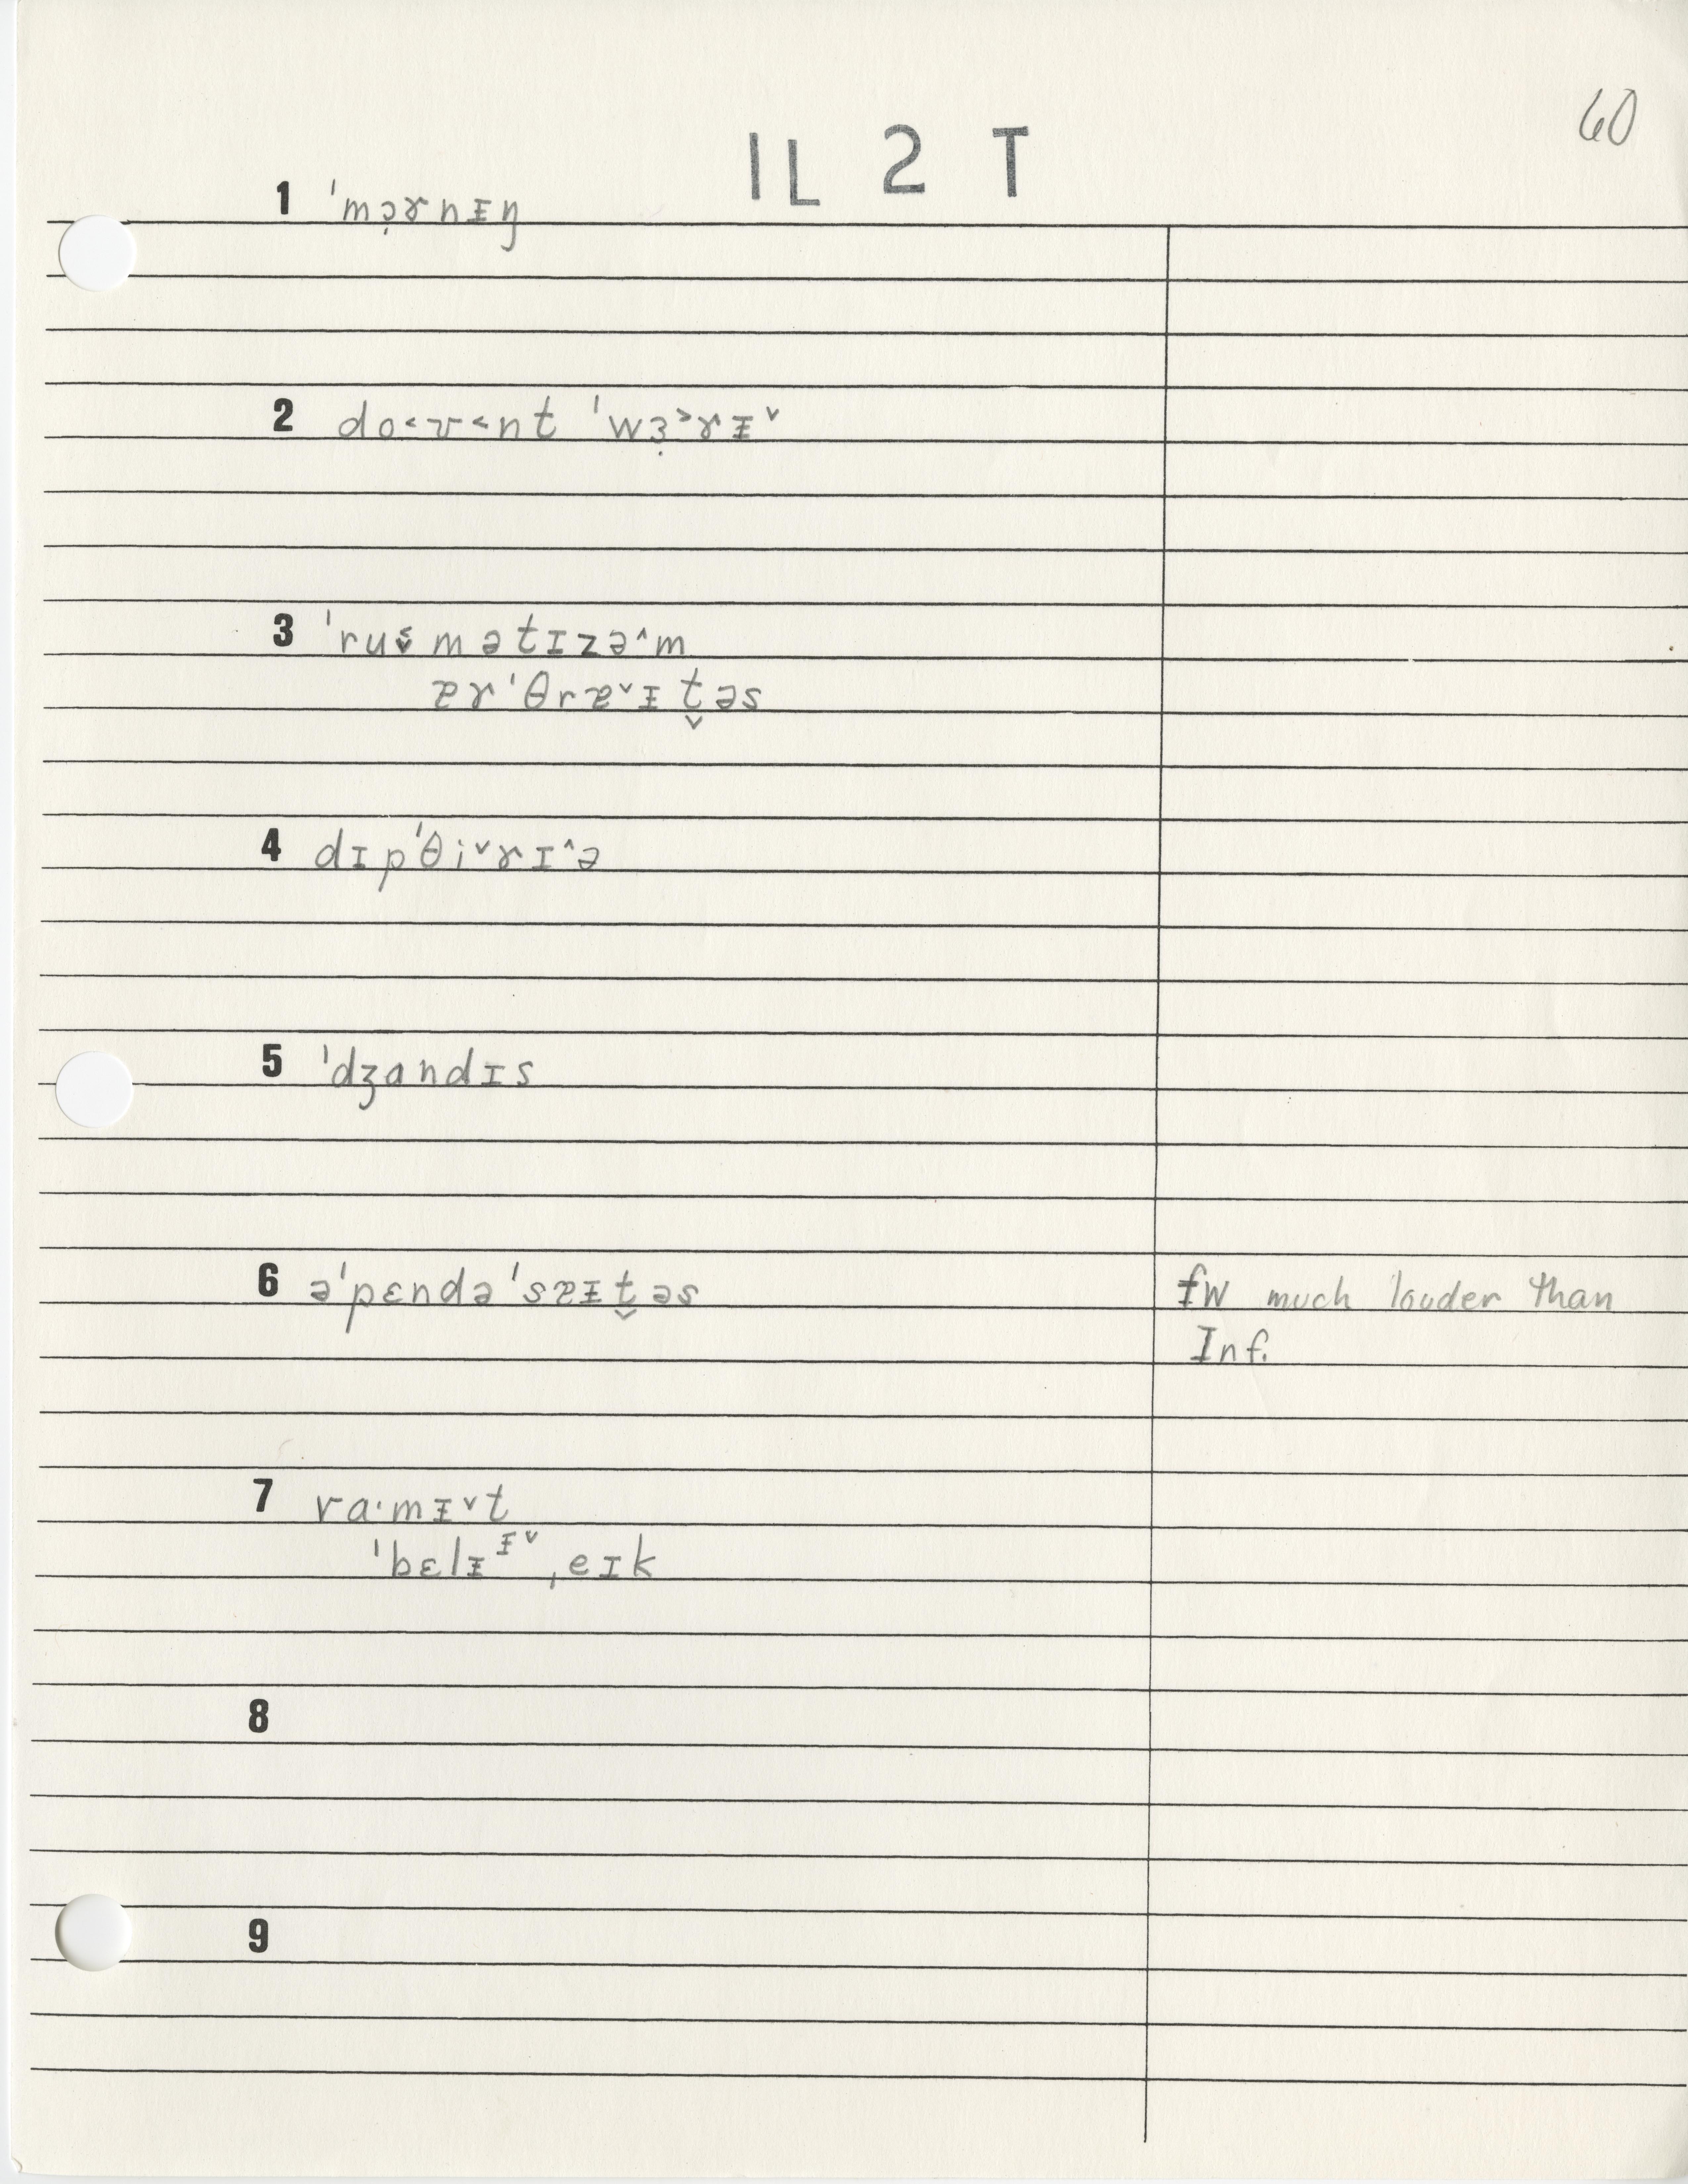 60
IL 2 T
1 ˈmɔ̣ɤnᵻŋ
2 do˂ʊ˂nt ˈwɜ̣˃ɤᵻ˅
3 ˈruˑ̬mətɪzə˄m
ɐɤˈθrɐ˅ᵻt̬əs
4 dɪpˈθi˅ɤɪ˄ə
5 ˈdʒandɪs
6 əˈpɛndəˈsɐᵻt̬əs fw much louder than
Inf.
7 vaˑmᵻ˅t
ˈbɛlᵻᵻ˅ˌeɪk
8
9